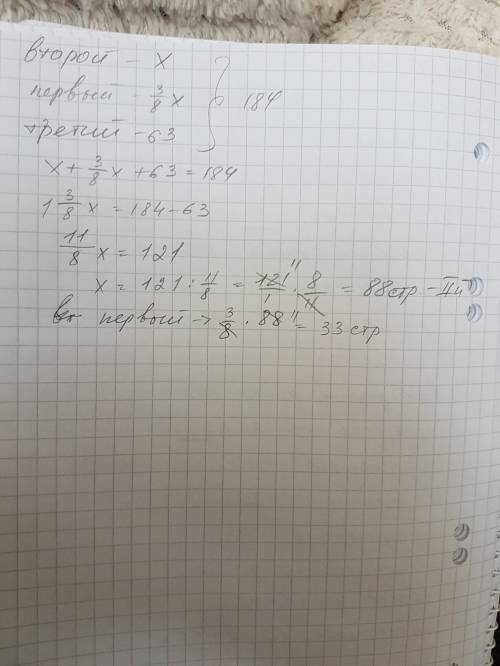 второй - x
первый - 3/8 x } 184
третий - 63
x + 3/8 x + 63 = 184
1 3/8 x = 184 - 63
11/8 x = 121
x = 121 : 11/8 = 121/1 11 · 8/11 = 88 стр - II й
первый → 3/8 · 88 11 = 33 стр